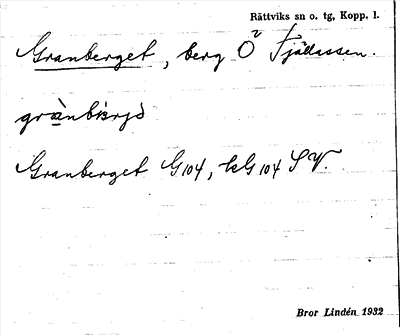 Rättviks sn o. tg, Kopp. l.
Granberget, berg Ö Fjällassen.
Granberget G104, kG104 SV.
Bror Lindén 1932